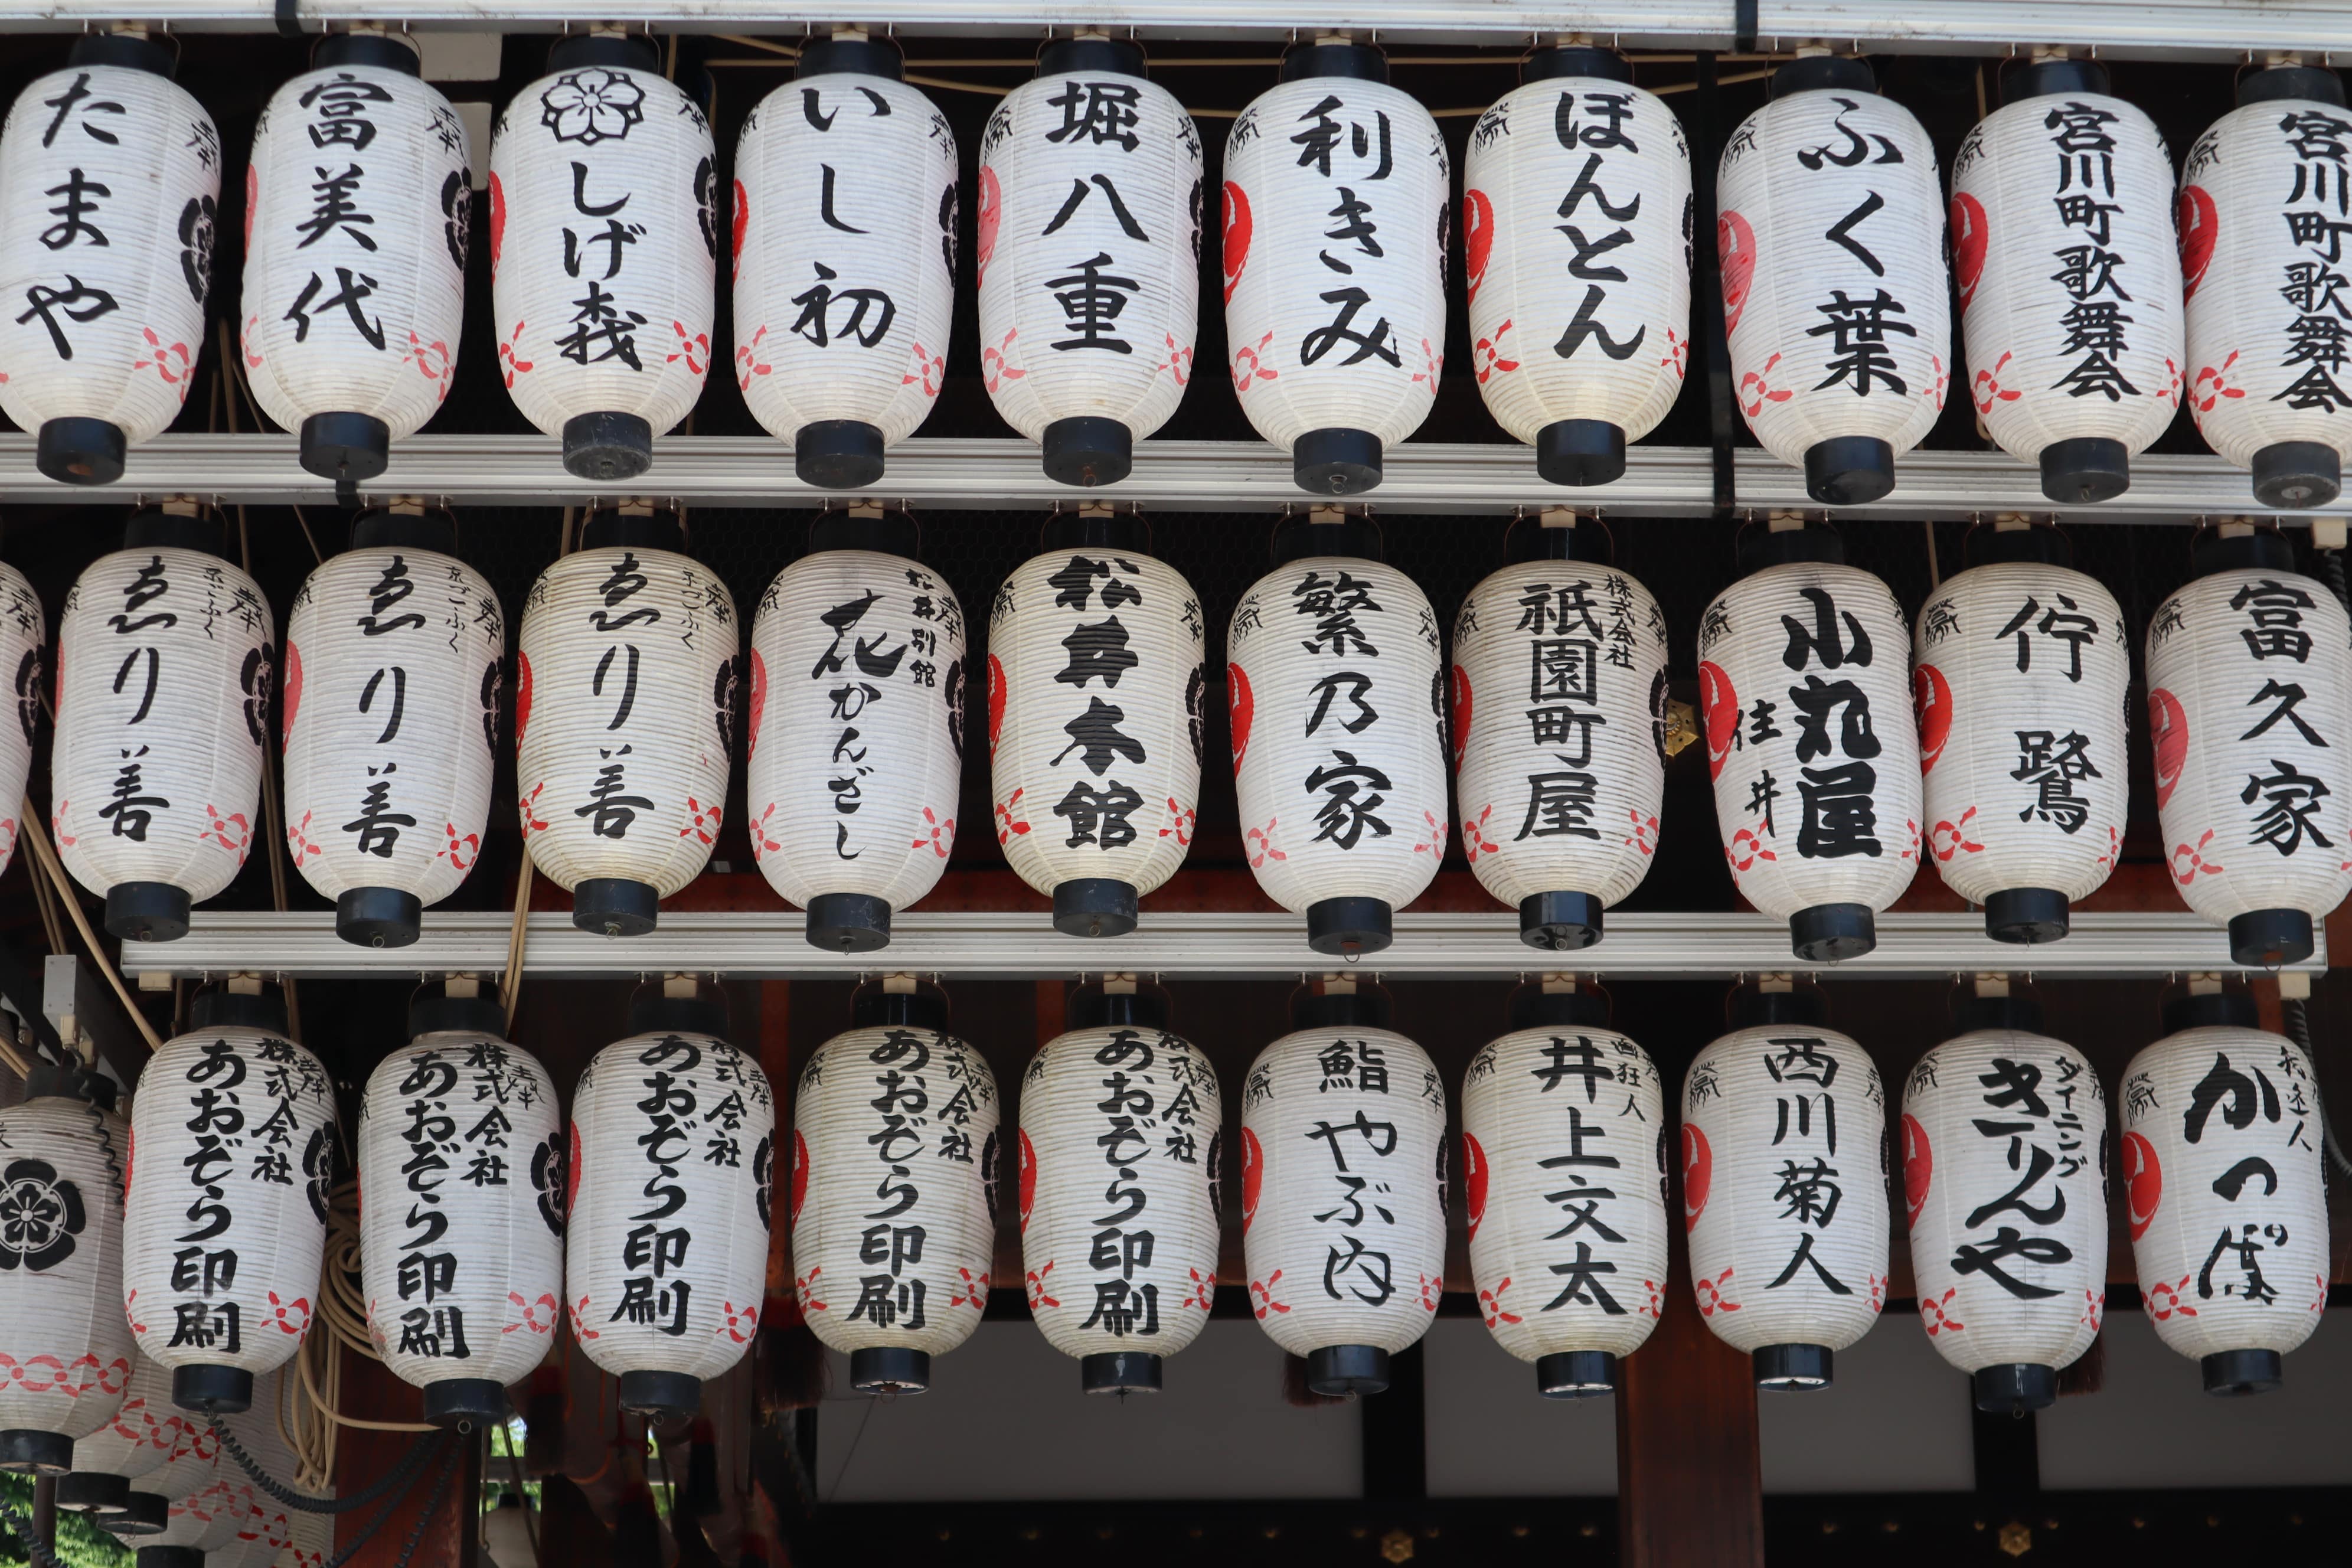 たまや
富美代
しげ森
いし初
堀八重
利きみ
ぼんとん
ふく葉
宮川町歌舞会
宮川町歌舞会
京ごふく
ゑり善
京ごふく
ゑり善
京ごふく
ゑり善
松井別館
花かんざし
松井本館
繁乃家
株式会社
祇園町屋
小丸屋
住井
佇鷺
富久家
株式会社
あおぞら印刷
株式会社
あおぞら印刷
株式会社
あおぞら印刷
株式会社
あおぞら印刷
株式会社
あおぞら印刷
鮨やぶ内
画狂人
井上文太
西川菊人
ダイニング
きりんや
かっぽ